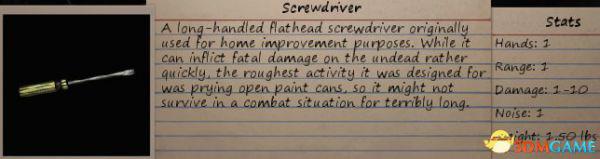 Screwdriver
A long-handled flathead screwdriver originally
used for home improvement purposes. While it
can inflict fatal damage on the undead rather
quickly, the roughest activity it was designed for
was prying open paint cans, so it might not
survive in a combat situation for terribly long.
Stats
Hands: 1
Range: 1
Damage: 1-10
Noise: 1
Weight: 1.50 lbs
3DMGAME